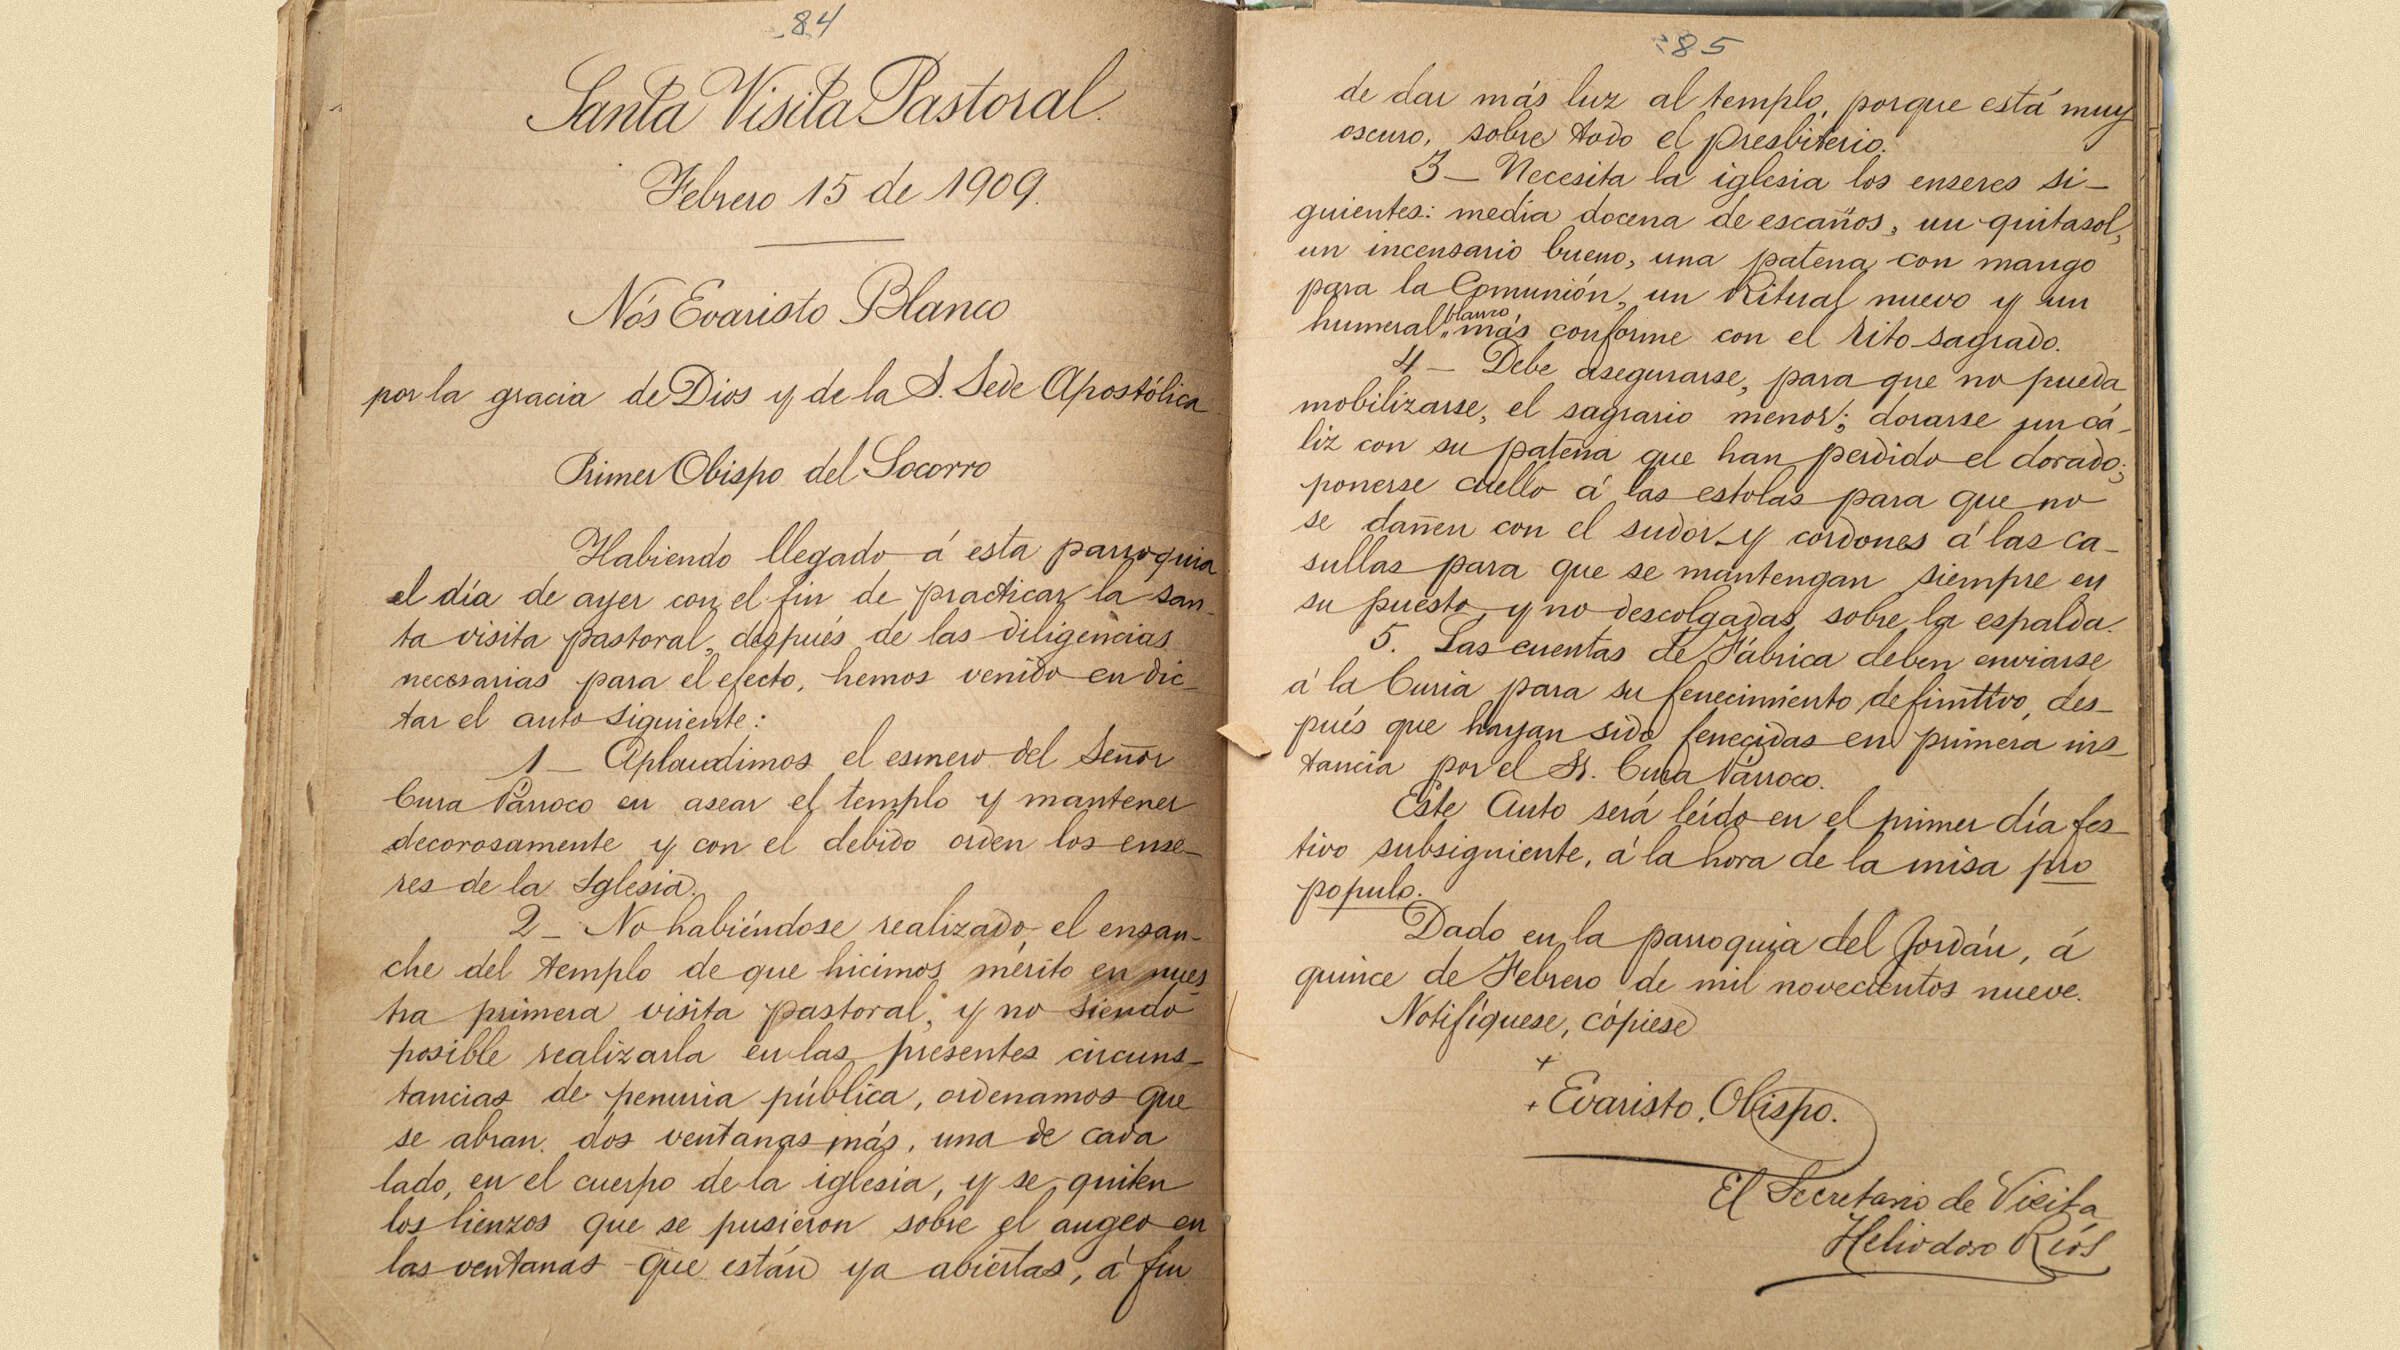 84
Santa Visita Pastoral.
Febrero 15 de 1909.
Nós Evaristo Blanco
por la gracia de Dios y de la S. Sede Apostólica
Primer Obispo del Socorro
Habiendo llegado á esta parroquia
el día de ayer con el fin de practicar la san-
ta visita pastoral, después de las diligencias
necesarias para el efecto, hemos venido en dic-
tar el auto siguiente:
1 — Aplaudimos el esmero del Señor
Cura Párroco en asear el templo y mantener
decorosamente y con el debido orden los ense-
res de la Iglesia.
2 — No habiéndose realizado el ensan-
che del templo de que hicimos mérito en nues-
tra primera visita pastoral, y no siendo
posible realizarla en las presentes circuns-
tancias de penuria pública, ordenamos que
se abran dos ventanas más, una de cada
lado, en el cuerpo de la iglesia, y se quiten
los lienzos que se pusieron sobre el angeo en
las ventanas que están ya abiertas, á fin
85
de dar más luz al templo, porque está muy
oscuro, sobre todo el presbiterio.
3 — Necesita la iglesia los enseres si-
guientes: media docena de escaños, un quitasol,
un incensario bueno, una patena con mango
para la Comunión, un Ritual nuevo y un
humeral blanco más conforme con el rito sagrado.
4 — Debe asegurarse, para que no pueda
mobilizarse, el sagrario menor; dorarse un cá-
liz con su patena que han perdido el dorado;
ponerse cuello á las estolas para que no
se dañen con el sudor y cordones á las ca-
sullas para que se mantengan siempre en
su puesto y no descolgadas sobre la espalda.
5. Las cuentas de Fábrica deben enviarse
á la Curia para su fenecimiento definitivo, des-
pués que hayan sido fenecidas en primera ins
tancia por el Sr. Cura Párroco.
Este Auto será leído en el primer día fes-
tivo subsiguiente, á la hora de la misa pro
populo.
Dado en la parroquia del Jordán, á
quince de Febrero de mil novecientos nueve.
Notifíquese, cópiese
+ Evaristo, Obispo.
El Secretario de Visita
Heliodoro Ríos